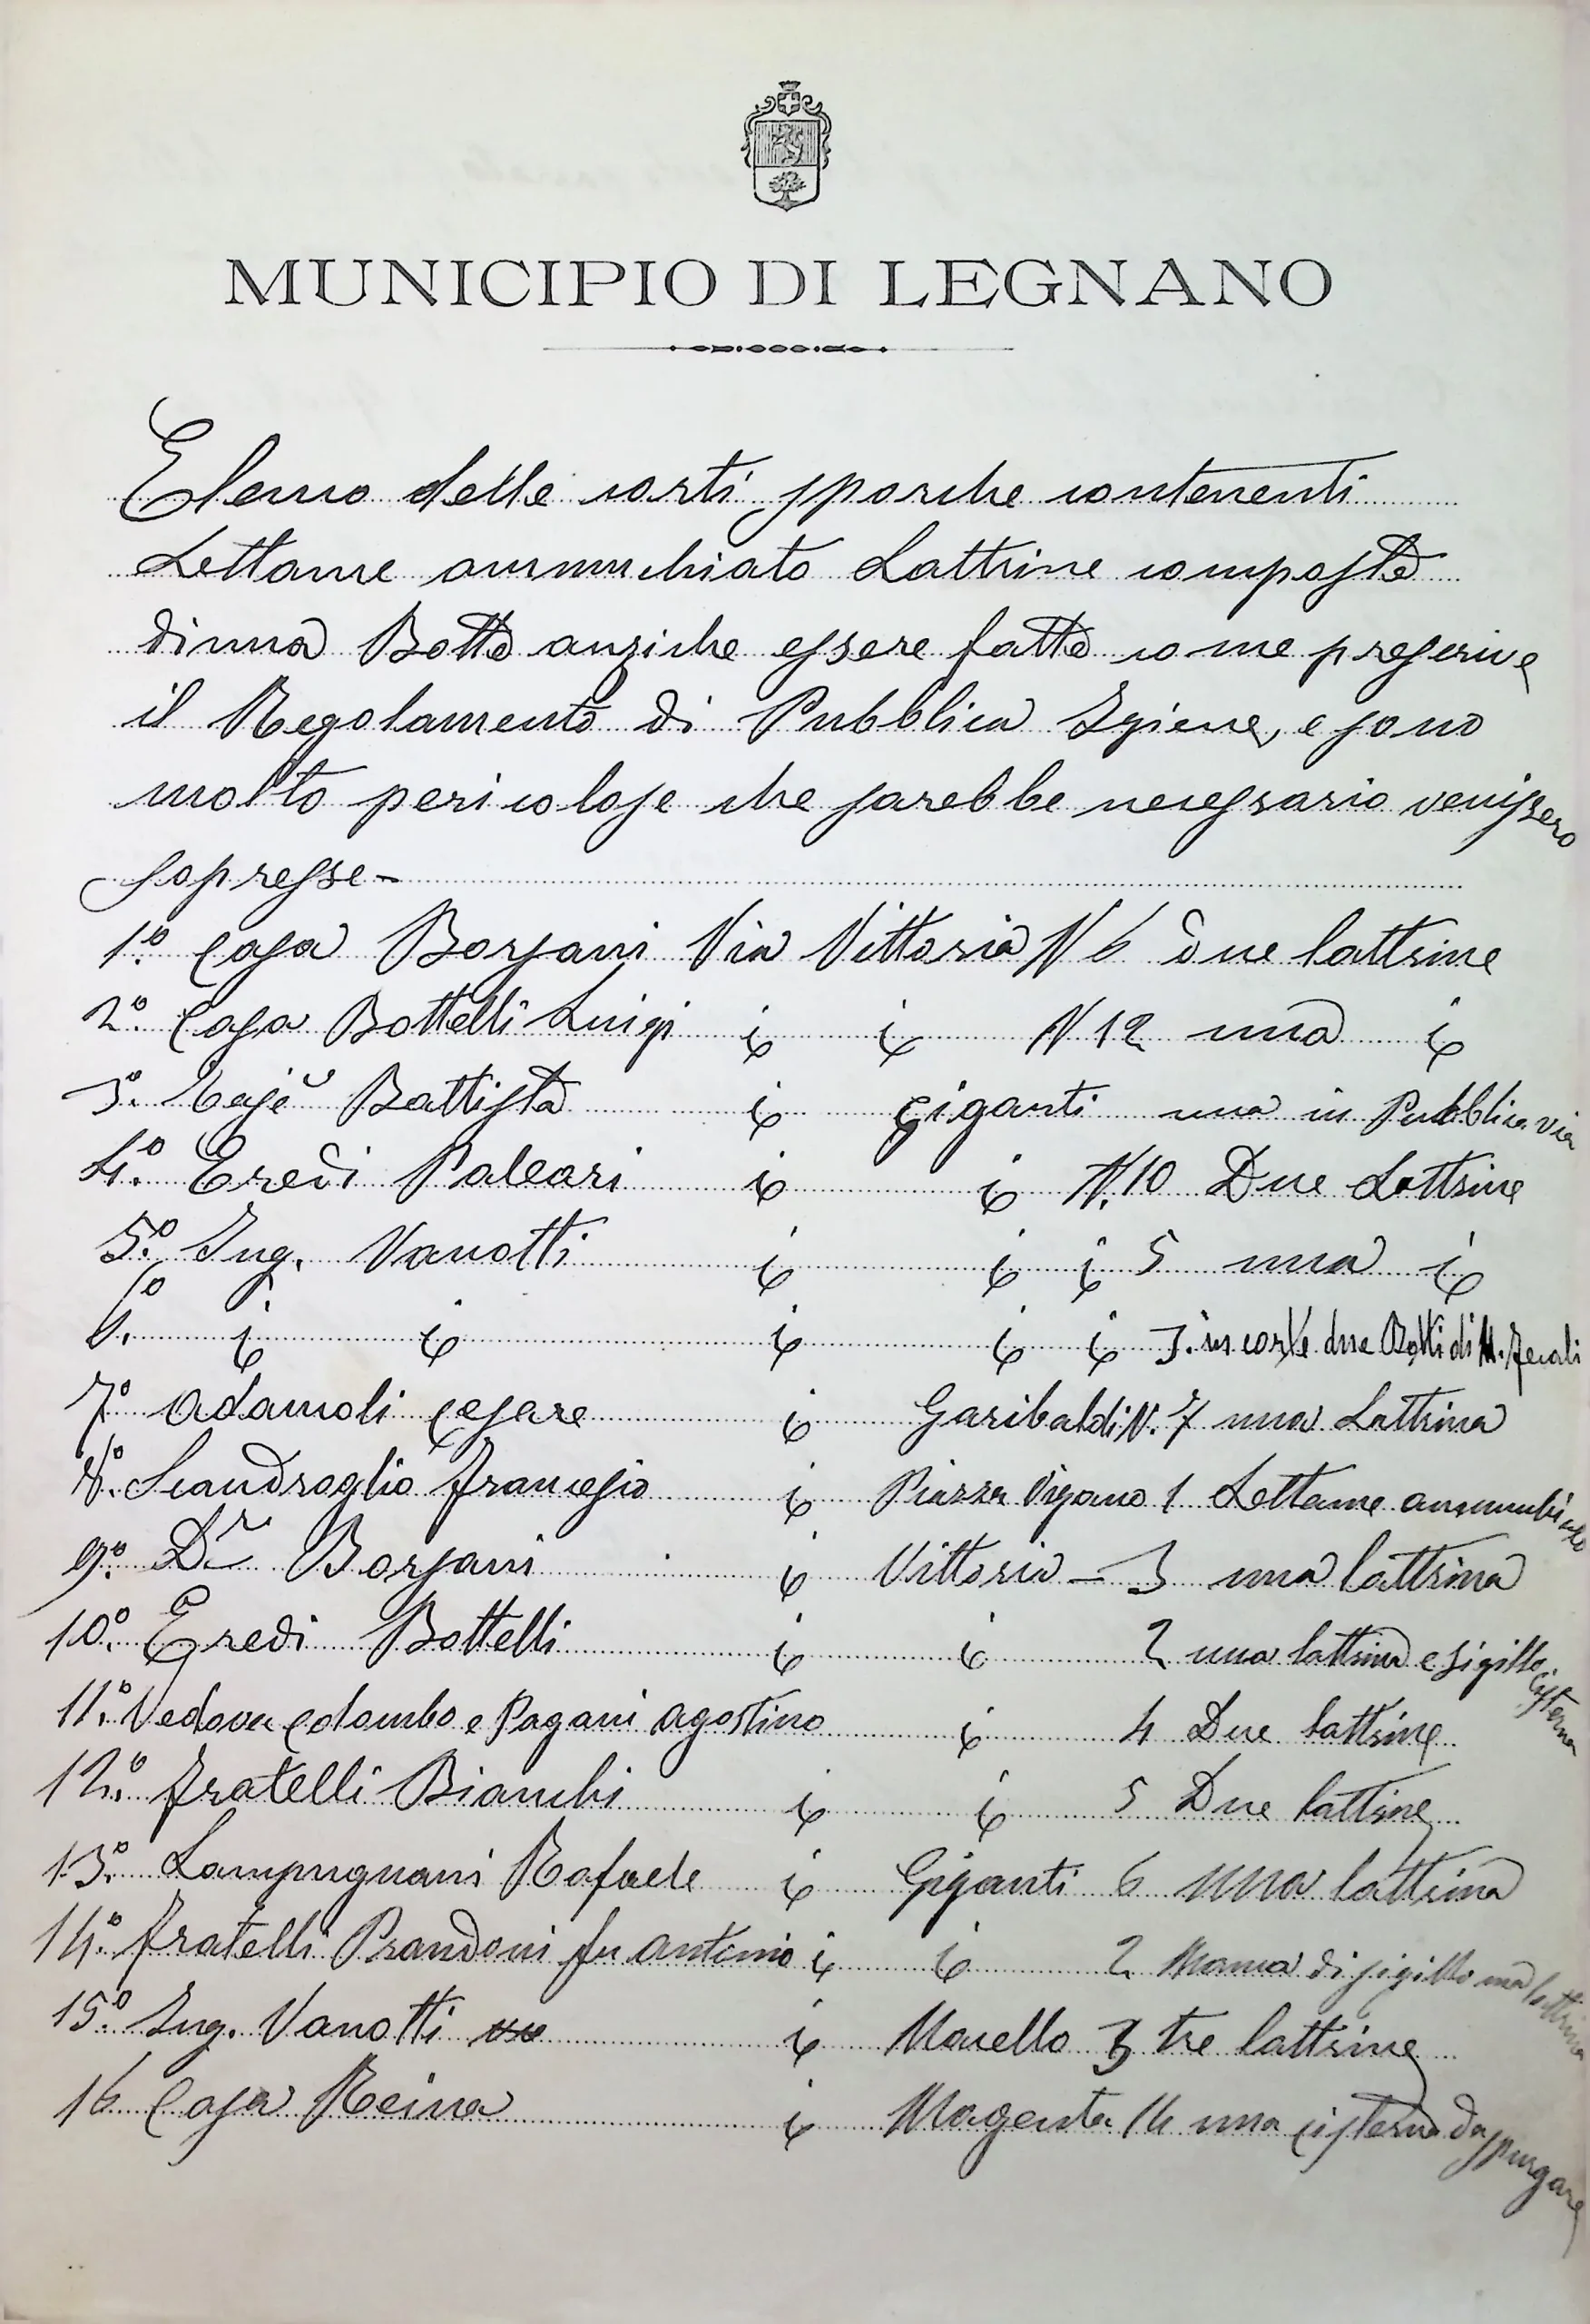 MUNICIPIO DI LEGNANO
Elenco delle corti sporche contenenti
Lettame ammucchiato Lattrine composte
di una Botte anziche essere fatte come prescrive
il Regolamento di Pubblica Igiene, e sono
molto pericolose che sarebbe necessario venissero
sopresse -
1º. Casa Borsani Via Vittoria N 6 due lattrine
2º. Casa Bottelli Luigi i i N 12 una i
3º. Battista i Giganti una in Pubblica via
4º. Eredi Paleari i i N. 10 Due Lattrine
5º. Ing. Vanotti i i i 5 una i
6º. i i i i i 3. in corte due Botti di M. Fecali
7º Adamoli Cesare i Garibaldi N. 7 una Lattrina
8º. Scandroglio Francesco i Piazza Vigano 1 Lettame ammucchiato
9º. Dr Borsani i Vittoria - 3 una lattrina
10º. Eredi Bottelli i i 2 una lattrina e sigillo Cisterna
11º. Vedova Colombo e Pagani Agostino i 4 Due lattrine
12º. Fratelli Bianchi i i 5 Due lattrine
13º. Lampugnani Rafaele i Giganti 6 una lattrina
14º. Fratelli Prandoni fu Antonio i i 2 Manca di sigillo una lattrina
15º. Ing. Vanotti i Macello 3 tre lattrine
16 Casa Reina i Magenta 14 una cisterna da spurgare